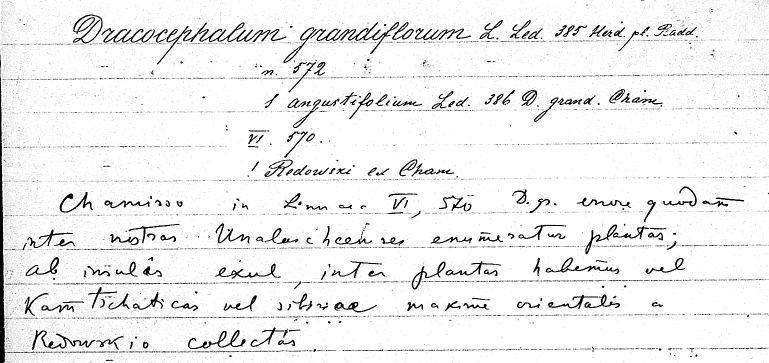 Dracocephalum grandiflorum L. Led. 385 Herd. pl. Radd.
n. 572
angustifolium Led. 386 D. grand. Cham
VI. 570.
! Redowski ex Cham.
Chamisso in Linnaea VI, 570 D. gr. errore quodam
inter nostras Unalaschcenses enumeratur plantas;
ab insulâ exul, inter plantas habemus vel
Kamtschaticas vel sibiriae maxime orientalis a
Redowskio collectas.